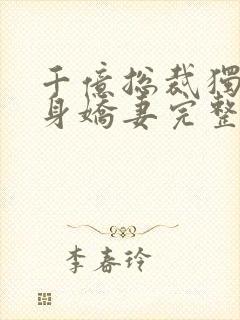 千億総裁獨
身嬌妻完整
李春玲